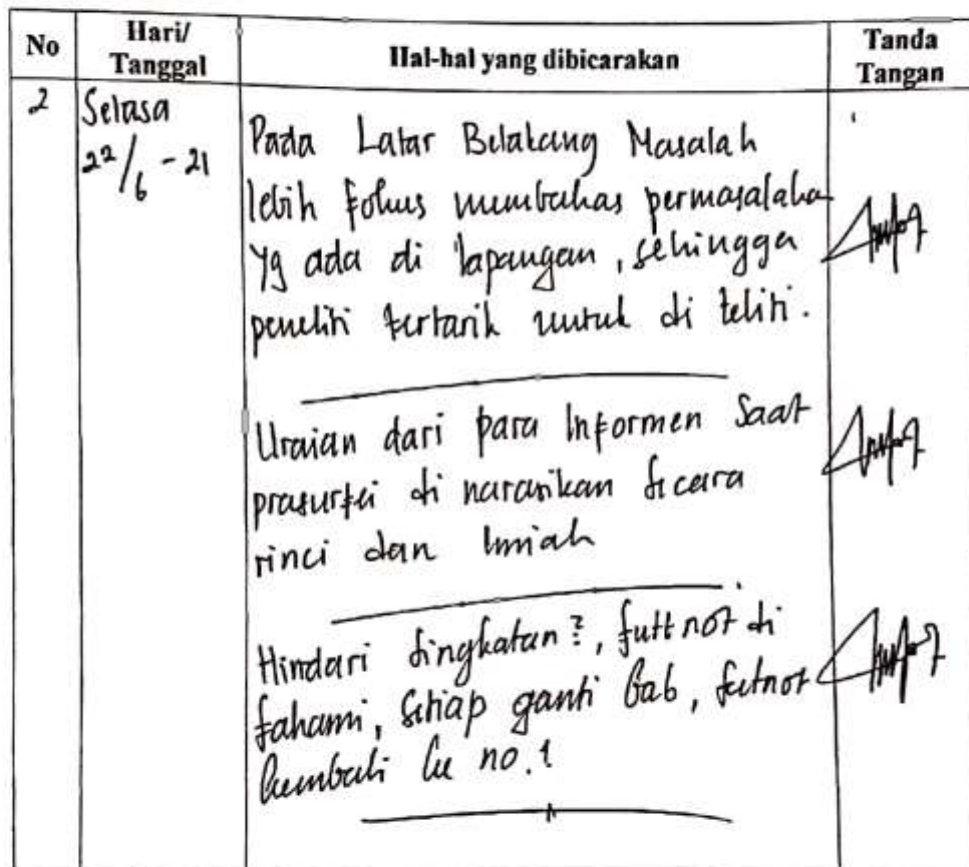 No
Hari/
Tanggal
Hal-hal yang dibicarakan
Tanda
Tangan
2
Selasa
22/6 - 21
Pada Latar Belakang Masalah
lebih fokus membahas permasalaha
yg ada di lapangan, sehingga
peneliti tertarik untuk di teliti.
Uraian dari para Informen Saat
prasurfei di narasikan secara
rinci dan Ilmiah
Hindari singkatan², futtnot di
fahami, setiap ganti bab, futnot
kembali ke no.1